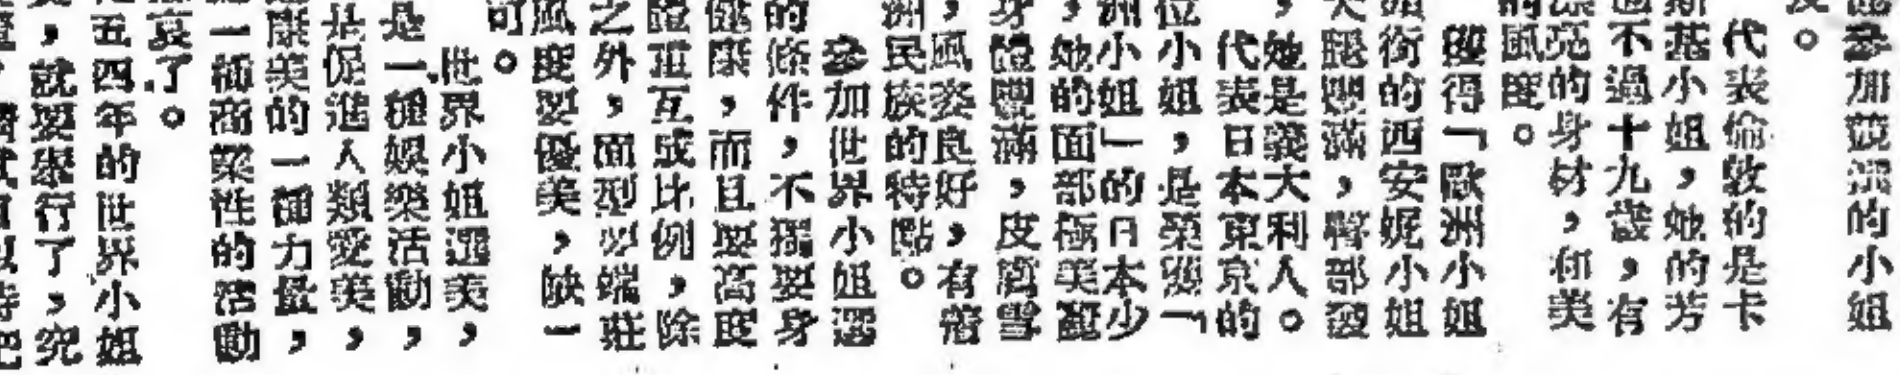 參加競選的小姐
。
代表倫敦的是卡
斯基小姐，她的芳
也不過十九歲，有
漂亮的身材，和美
的風度。
獲得「歐洲小姐
頭銜的西安妮小姐
大腿豐滿，臀部發
，她是義大利人。
代表日本東京的
位小姐，是榮獲「
洲小姐」的日本少
，她的面部極美麗
身體豐滿，皮膚雪
，風姿良好，有着
洲民族的特點。
參加世界小姐選
的條件，不獨要身
健康，而且要高度
體重互成比例，除
之外，面型要端莊
風度要優美，缺一
可。
世界小姐選美，
是一種娛樂活動，
是促進人類愛美，
康美的一種力量，
一種商業性的活動
哀了。
五四年的世界小姐
，就要舉行了，究